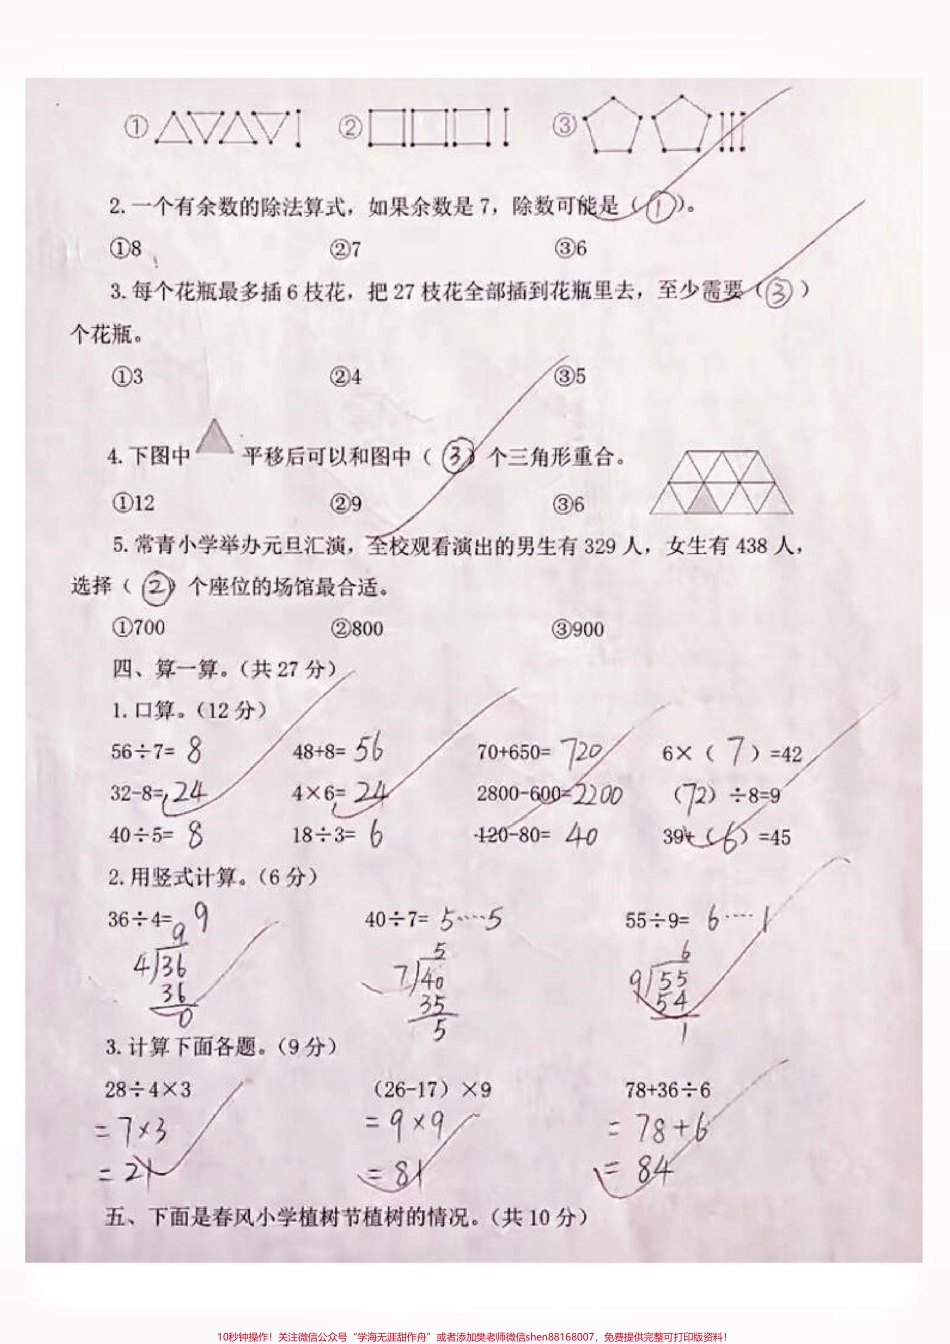 ① ② ③
2.一个有余数的除法算式，如果余数是7，除数可能是（ ① ）。
①8 ②7 ③6
3.每个花瓶最多插6枝花，把27枝花全部插到花瓶里去，至少需要（ ③ ）
个花瓶。
①3 ②4 ③5
4.下图中 平移后可以和图中（ ③ ）个三角形重合。
①12 ②9 ③6
5.常青小学举办元旦汇演，全校观看演出的男生有329人，女生有438人，
选择（ ② ）个座位的场馆最合适。
①700 ②800 ③900
四、算一算。（共27分）
1.口算。（12分）
56÷7= 8 48+8= 56 70+650= 720 6×（ 7 ）=42
32-8= 24 4×6= 24 2800-600=2200 （72）÷8=9
40÷5= 8 18÷3= 6 120-80= 40 39+（ 6 ）=45
2.用竖式计算。（6分）
36÷4= 9 40÷7= 5……5 55÷9= 6……1
9 5 6
4)36 7)40 9)55
36 35 54
0 5 1
3.计算下面各题。（9分）
28÷4×3 （26-17）×9 78+36÷6
=7×3 =9×9 =78+6
=21 =81 =84
五、下面是春风小学植树节植树的情况。（共10分）
10秒钟操作！关注微信公众号“学海无涯甜作舟”或者添加樊老师微信shen88168007，免费提供完整可打印版资料！